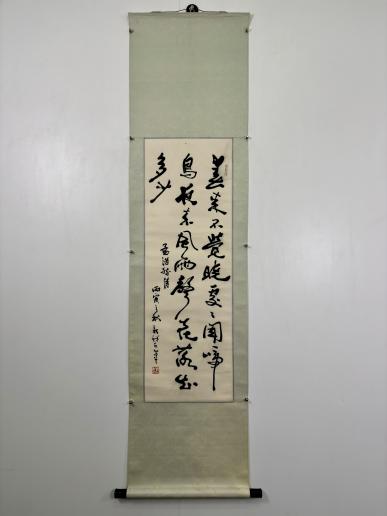 春眠不覺曉處〻聞啼
鳥夜来風雨聲花落知
多少
孟浩然詩
丙寅之秋